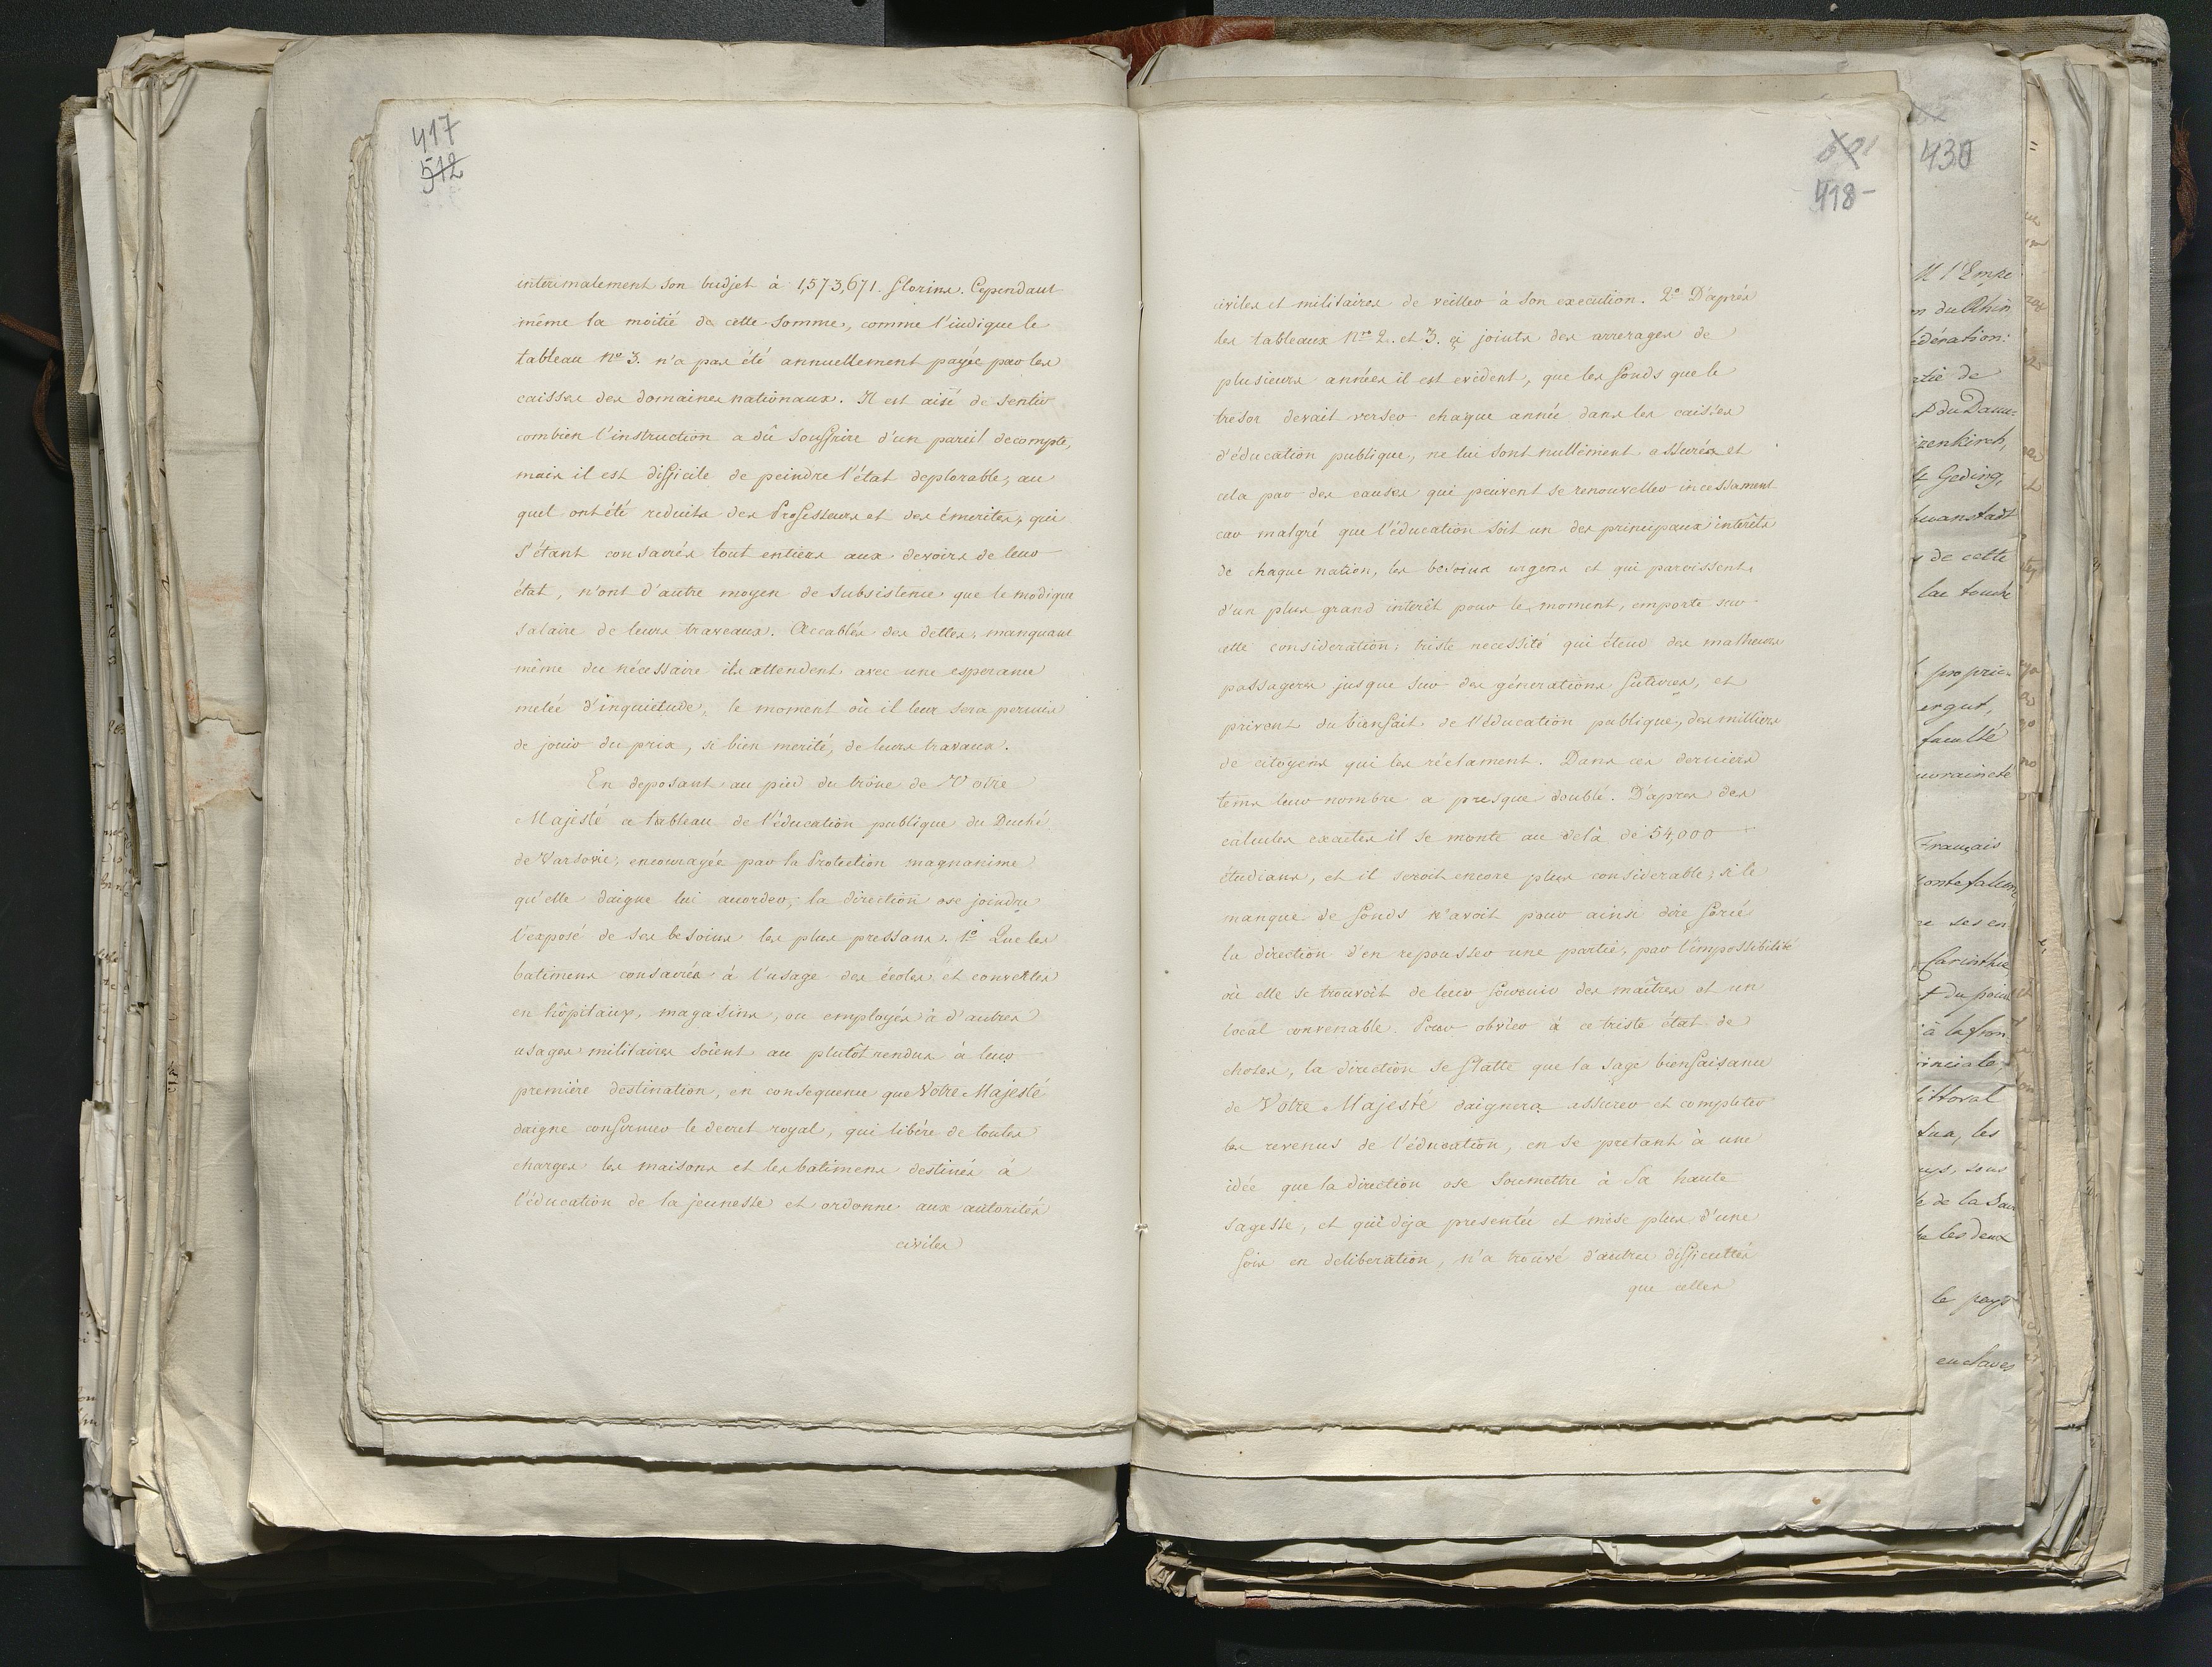 417
512
interimalement son budjet à 1,573,671. florins. Cependant
même la moitié de cette somme, comme l'indique le
tableau No 3. n'a pas été annuellement payée par les
caisses des domaines nationaux. Il est aisé de sentir
combien l'instruction a dû souffrire d'un pareil decompte,
mais il est difficile de peindre l'état deplorable, au
quel ont été reduits des Professeurs et des émerites, qui
s'étant consacrés tout entiers aux devoirs de leur
état, n'ont d'autre moyen de subsistence que le modique
salaire de leurs traveaux. Accablés des dettes, manquant
même du nécessaire ils attendent avec une esperance
melée d'inquietude, le moment où il leur sera permis
de jouir du prix, si bien merité, de leurs travaux.
En deposant au pied du trône de Votre
Majesté ce tableau de l'éducation publique du Duché
de Varsovie, encouragée par la Protection magnanime
qu'elle daigne lui accorder, la direction ose joindre
l'exposé de ses besoins les plus pressans. 1o Que les
batimens consacrés à l'usage des écoles et convertis
en hôpitaux, magasins, ou employés à d'autres
usages militaires soient au plutôt rendus à leur
première destination, en consequence que Votre Majesté
daigne confirmer le decret royal, qui libère de toutes
charges les maisons et les batimens destinés à
l'éducation de la jeunesse et ordonne aux autorités
civiles
418-
civiles et militaires de veiller à son execution. 2o D'après
les tableaux Nro 2. et 3. çi joints des arrerages de
plusieurs années il est evident, que les fonds que le
tresor devait verser chaque année dans les caisses
d'éducation publique, ne lui sont nullement assurés et
cela par des causes qui peuvent se renouveller incessament
car malgré que l'éducation soit un des principaux intérêts
de chaque nation, les besoins urgens et qui paroissent
d'un plus grand interêt pour le moment, emporte sur
cette consideration; triste necessité qui étend des malheurs
passagers jusque sur des générations futures, et
privent du bienfait de l'éducation publique, des milliers
de citoyens qui les réclament. Dans ces derniers
tems leur nombre a presque doublé. D'apres des
calcules exactes il se monte au delà de 54,000
étudians, et il seroit encore plus considerable, si le
manque de fonds n'avoit pour ainsi dire forcé
la direction d'en repousser une partie, par l'impossibilité
où elle se trouvoit de leur fournir des maîtres et un
local convenable. Pour obvier à ce triste état de
choses, la direction se flatte que la sage bienfaisance
de Votre Majesté daignera assurer et completer
les revenus de l'éducation, en se pretant à une
idée que la direction ose soumettre à Sa haute
sagesse, et qui deja presentée et mise plus d'une
fois en deliberation, n'a trouvé d'autres difficultés
que celles
430
M l'Empe
n du Rhin
édération:
rtie de
P du Danu-
izenkirch,
& Geding,
wanstadt
de cette
lac
proprié
ergut,
faculté
uveraineté
Français
Montefalcone
ce ses en
Carinthie
t du point
à la fron
vinciale
littoral
les
sous
de la Sav
les deux
le pays
enclaves